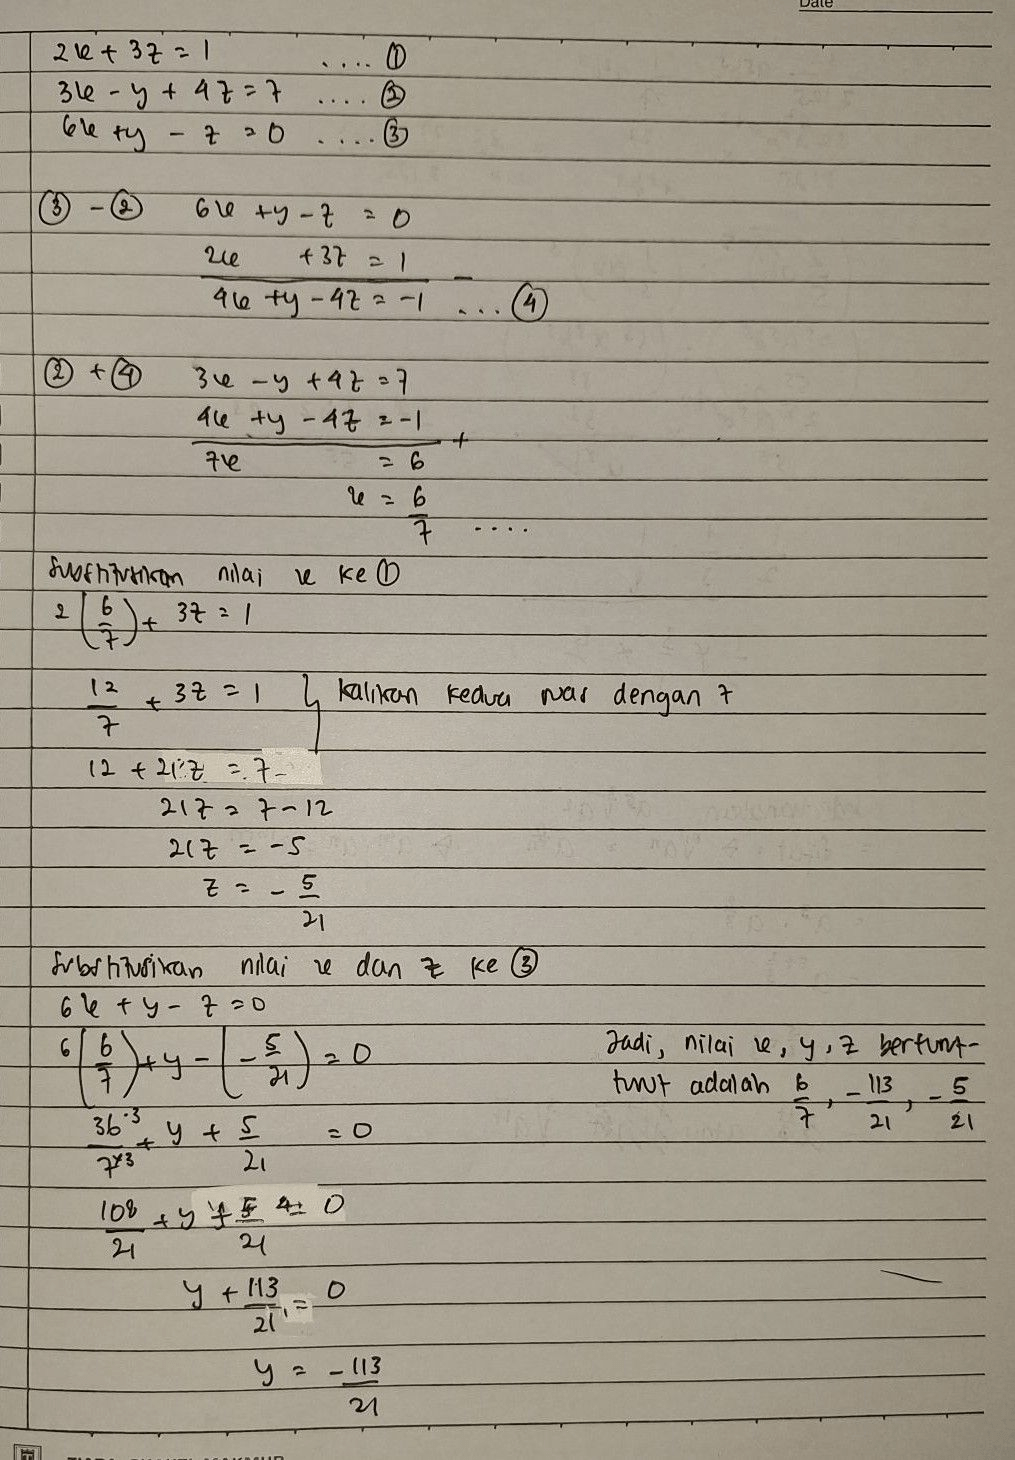 Date
2x + 3z = 1 .... ①
3x - y + 4z = 7 .... ②
6x + y - z = 0 .... ③
③ - ② 6x + y - z = 0
2x + 3z = 1 -
4x + y - 4z = -1 ... ④
② + ④ 3x - y + 4z = 7
4x + y - 4z = -1 +
7x = 6
x = 6/7 ....
Substitusikan nilai x ke ①
2(6/7) + 3z = 1
12/7 + 3z = 1 } kalikan kedua ruas dengan 7
12 + 21z = 7
21z = 7 - 12
21z = -5
z = -5/21
Substitusikan nilai x dan z ke ③
6x + y - z = 0
6(6/7) + y - (-5/21) = 0
36·3/7×3 + y + 5/21 = 0
108/21 + y + 5/21 = 0
y + 113/21 = 0
y = -113/21
Jadi, nilai x, y, z berturut-
turut adalah 6/7, -113/21, -5/21